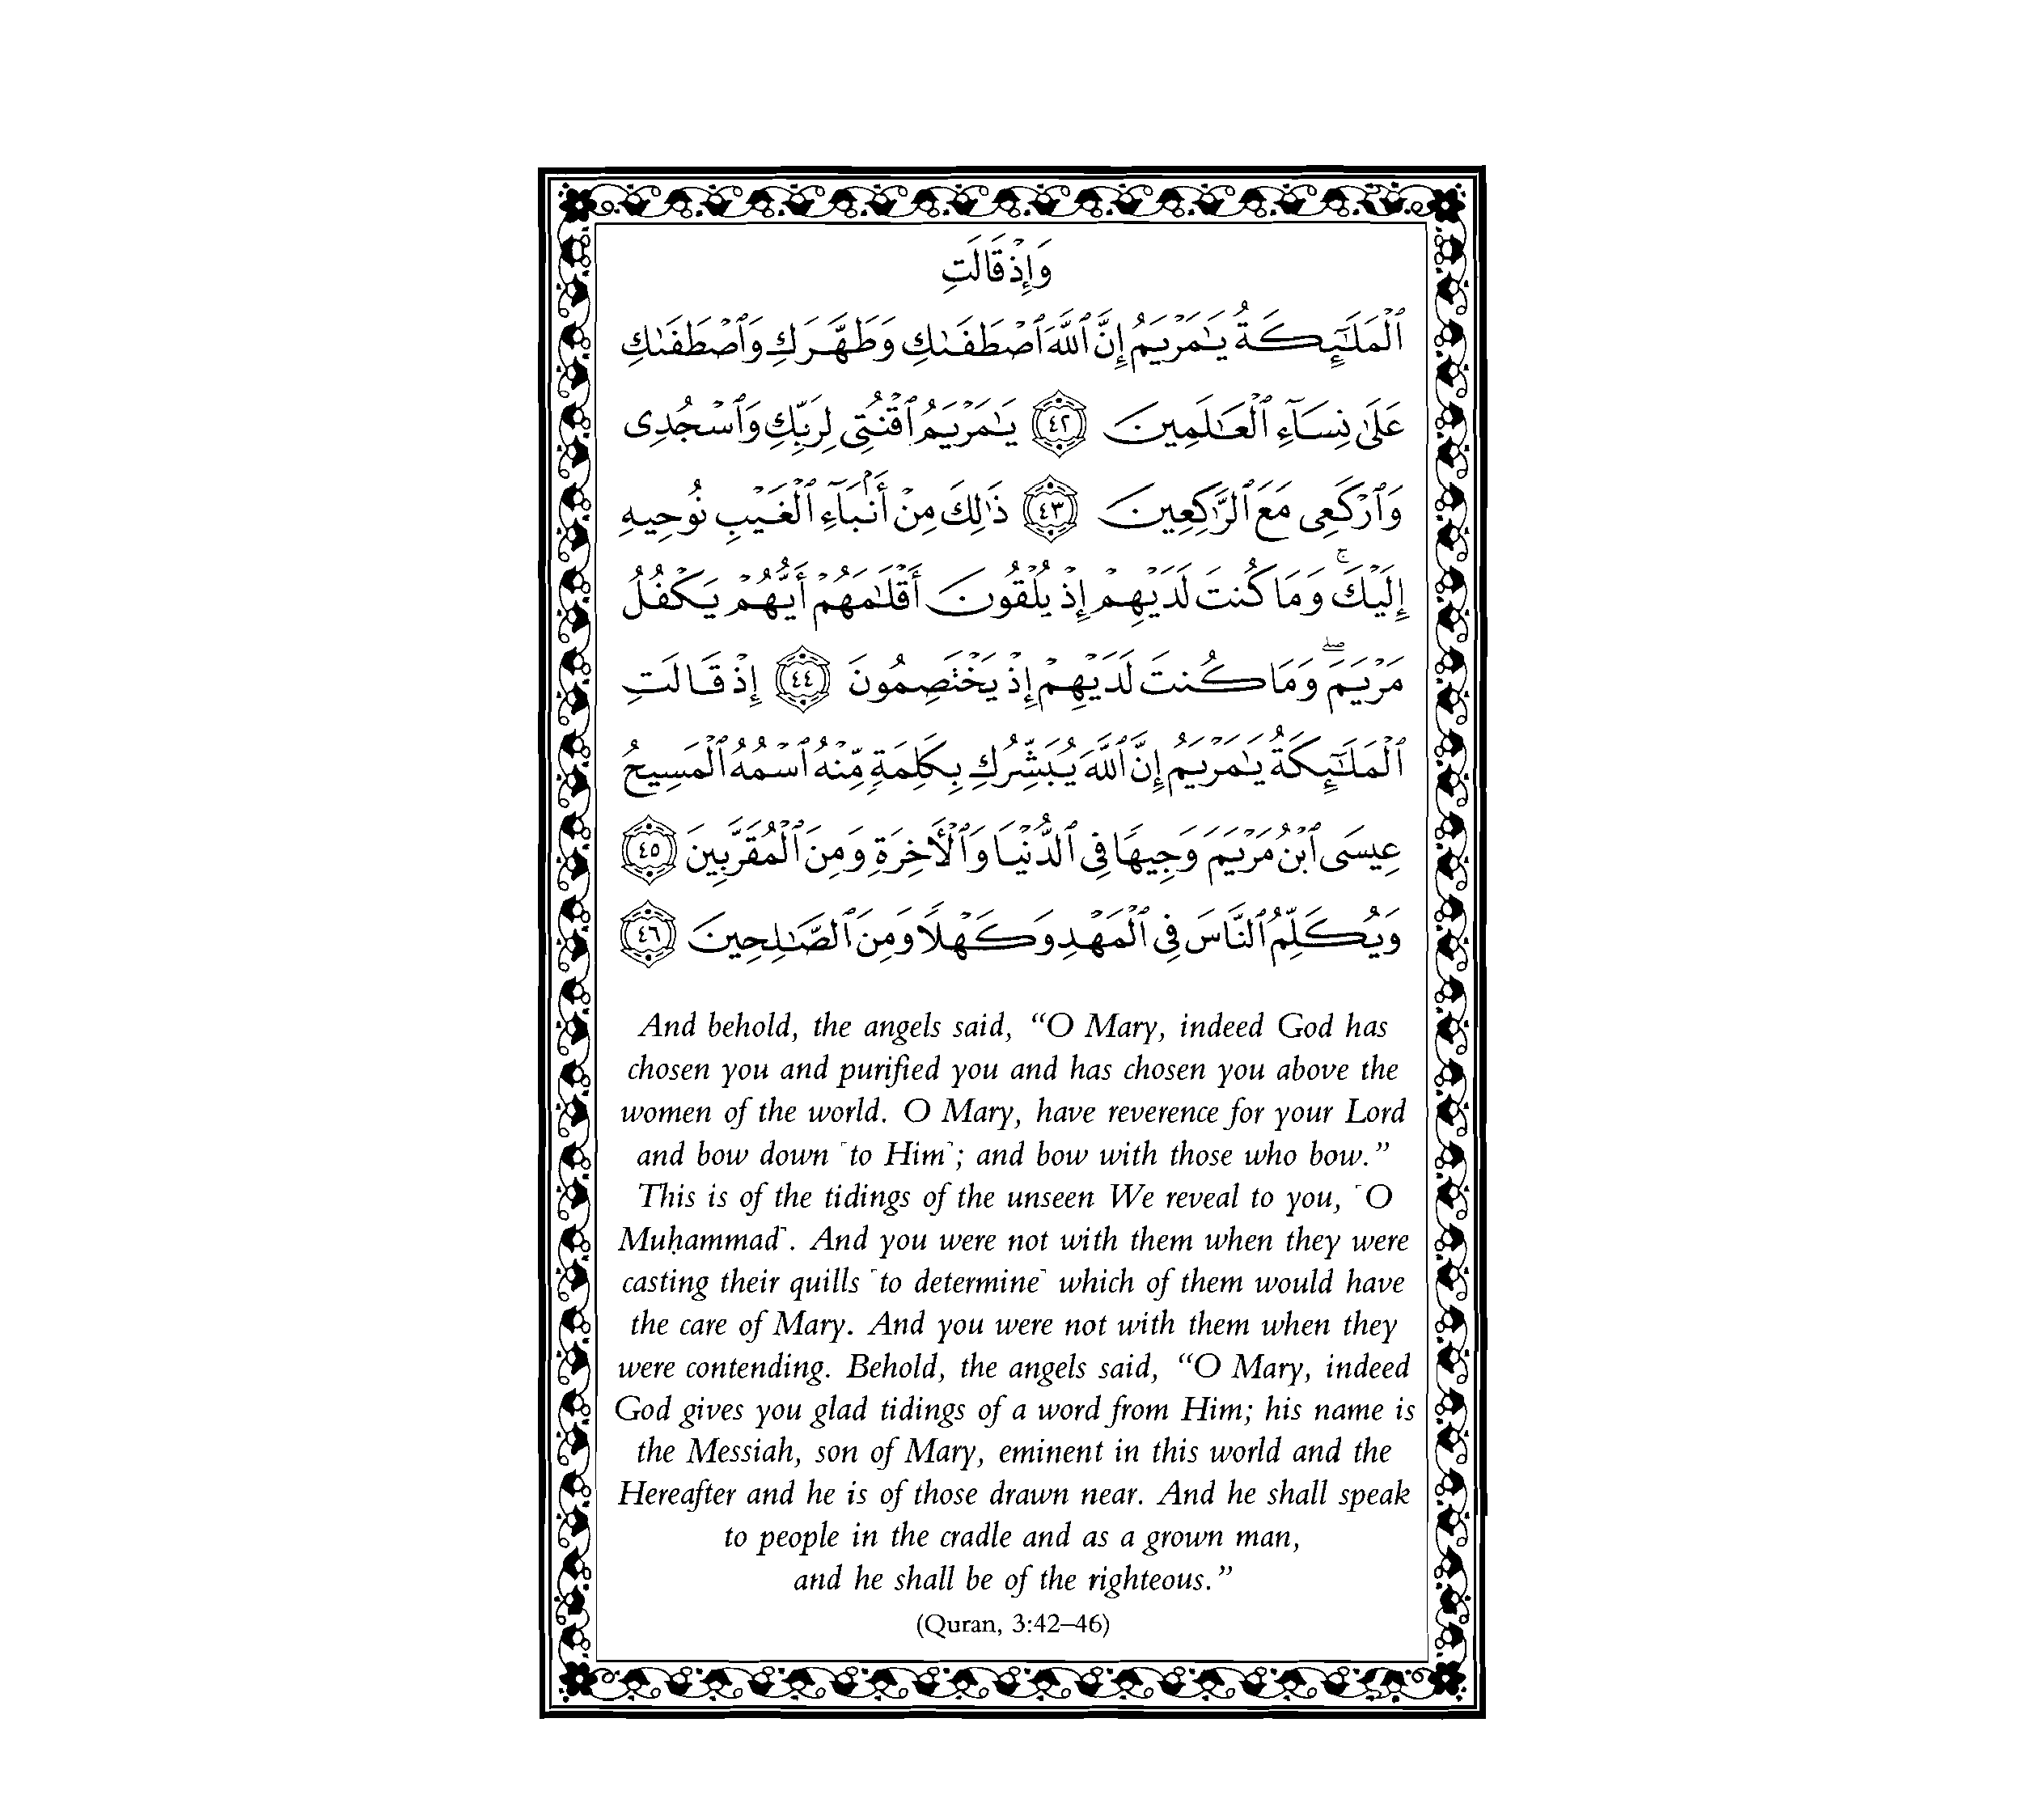 وَإِذْ قَالَتِ
ٱلْمَلَٰٓئِكَةُ يَٰمَرْيَمُ إِنَّ ٱللَّهَ ٱصْطَفَىٰكِ وَطَهَّرَكِ وَٱصْطَفَىٰكِ
عَلَىٰ نِسَآءِ ٱلْعَٰلَمِينَ ٤٢ يَٰمَرْيَمُ ٱقْنُتِى لِرَبِّكِ وَٱسْجُدِى
وَٱرْكَعِى مَعَ ٱلرَّٰكِعِينَ ٤٣ ذَٰلِكَ مِنْ أَنۢبَآءِ ٱلْغَيْبِ نُوحِيهِ
إِلَيْكَ ۚ وَمَا كُنتَ لَدَيْهِمْ إِذْ يُلْقُونَ أَقْلَٰمَهُمْ أَيُّهُمْ يَكْفُلُ
مَرْيَمَ ۖ وَمَا كُنتَ لَدَيْهِمْ إِذْ يَخْتَصِمُونَ ٤٤ إِذْ قَالَتِ
ٱلْمَلَٰٓئِكَةُ يَٰمَرْيَمُ إِنَّ ٱللَّهَ يُبَشِّرُكِ بِكَلِمَةٍ مِّنْهُ ٱسْمُهُ ٱلْمَسِيحُ
عِيسَى ٱبْنُ مَرْيَمَ وَجِيهًا فِى ٱلدُّنْيَا وَٱلْأَخِرَةِ وَمِنَ ٱلْمُقَرَّبِينَ ٤٥
وَيُكَلِّمُ ٱلنَّاسَ فِى ٱلْمَهْدِ وَكَهْلًا وَمِنَ ٱلصَّٰلِحِينَ ٤٦
And behold, the angels said, “O Mary, indeed God has
chosen you and purified you and has chosen you above the
women of the world. O Mary, have reverence for your Lord
and bow down ⸢to Him⸣; and bow with those who bow.”
This is of the tidings of the unseen We reveal to you, ⸢O
Muḥammad⸣. And you were not with them when they were
casting their quills ⸢to determine⸣ which of them would have
the care of Mary. And you were not with them when they
were contending. Behold, the angels said, “O Mary, indeed
God gives you glad tidings of a word from Him; his name is
the Messiah, son of Mary, eminent in this world and the
Hereafter and he is of those drawn near. And he shall speak
to people in the cradle and as a grown man,
and he shall be of the righteous.”
(Quran, 3:42–46)